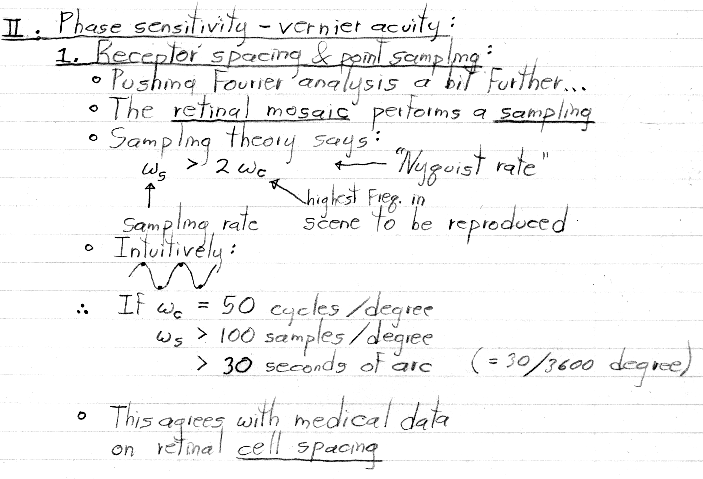 II. Phase sensitivity - vernier acuity:
1. Receptor spacing & point sampling:
• Pushing Fourier analysis a bit further...
• The retinal mosaic performs a sampling
• Sampling theory says:
ωs > 2ωc ← "Nyquist rate"
highest freq. in
sampling rate scene to be reproduced
• Intuitively:
∴ If ωc = 50 cycles/degree
ωs > 100 samples/degree
> 30 seconds of arc (= 30/3600 degree)
• This agrees with medical data
on retinal cell spacing